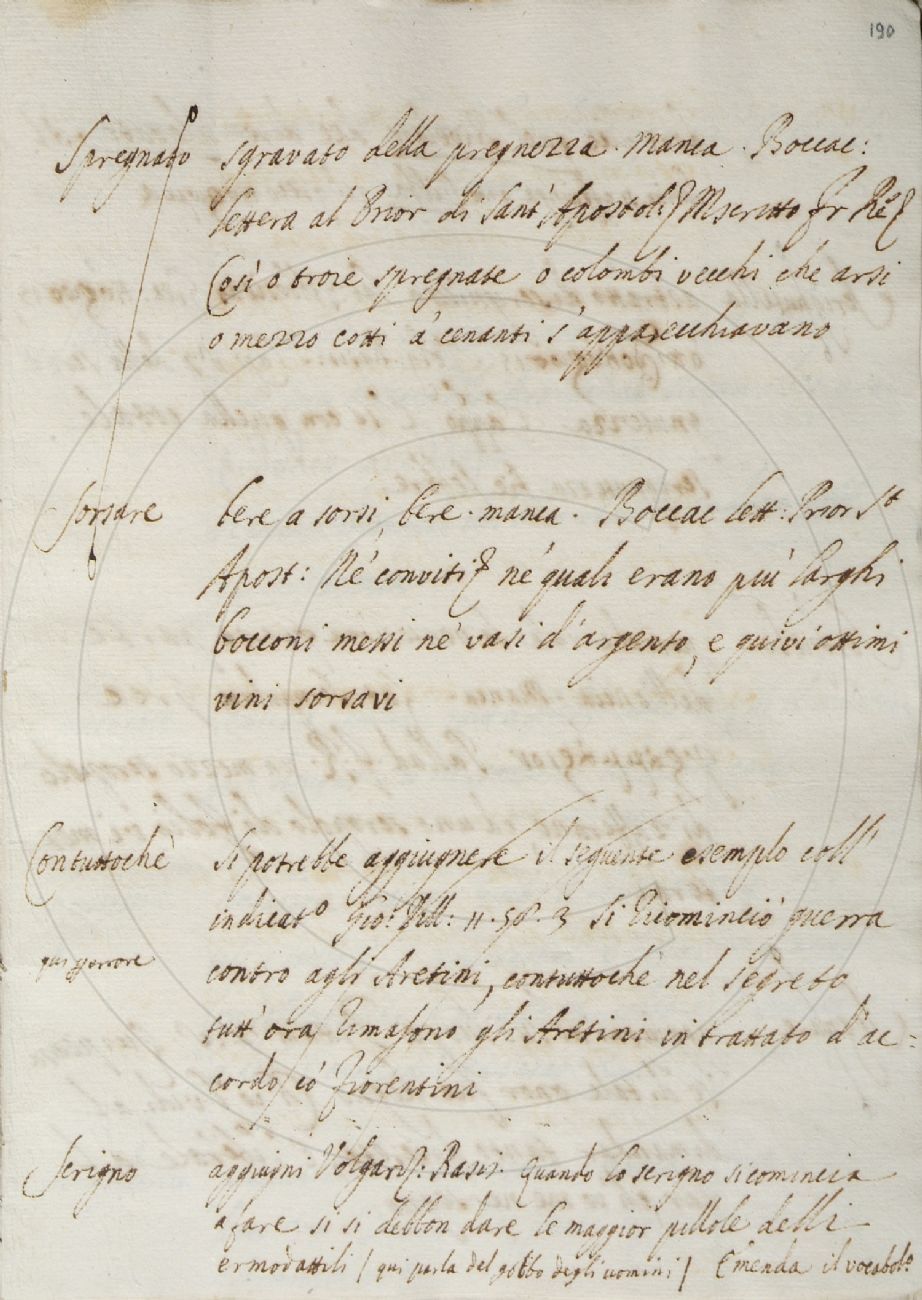 190
Spregnato sgravato della pregnezza. manca. Boccac:
lettera al Prior di Sant' Apostoli Mscritto fr Re
Così o troie spregnate o colombi vecchi che arsi
o mezzo cotti a' cenanti s' apparecchiavano
Sorsare bere a sorsi, bere. manca. Boccac lett: Prior St
Apost: Ne' conviti ne' quali erano più larghi
bocconi messi ne' vasi d' argento, e quivi ottimi
vini sorsavi
Contuttochè Si potrebbe aggiugnere il seguente esemplo coll'
indicato Gio: Vill: 11. 58. 3 Si ricominciò guerra
contro agli Aretini, contuttochè nel segreto
tutt' ora rimasono gli Aretini in trattato d' ac=
cordo co' Fiorentini
Serigno aggiugni Volgariz: Rasis. Quando lo serigno si comincia
a fare si si debbon dare le maggior pillole delli
ermodattili / qui parla del gobbo degli uomini / Emenda il vocabolo